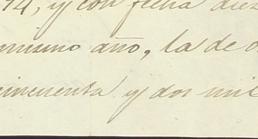 74, y con fecha diez
mismo año, la de o
cincuenta y dos mil